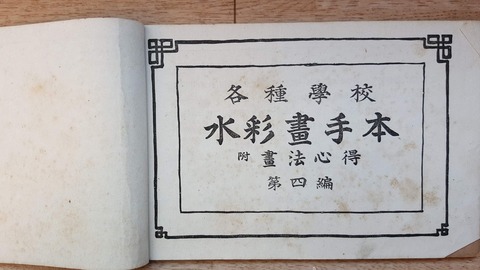 各種學校
水彩畫手本
附畫法心得
第四編